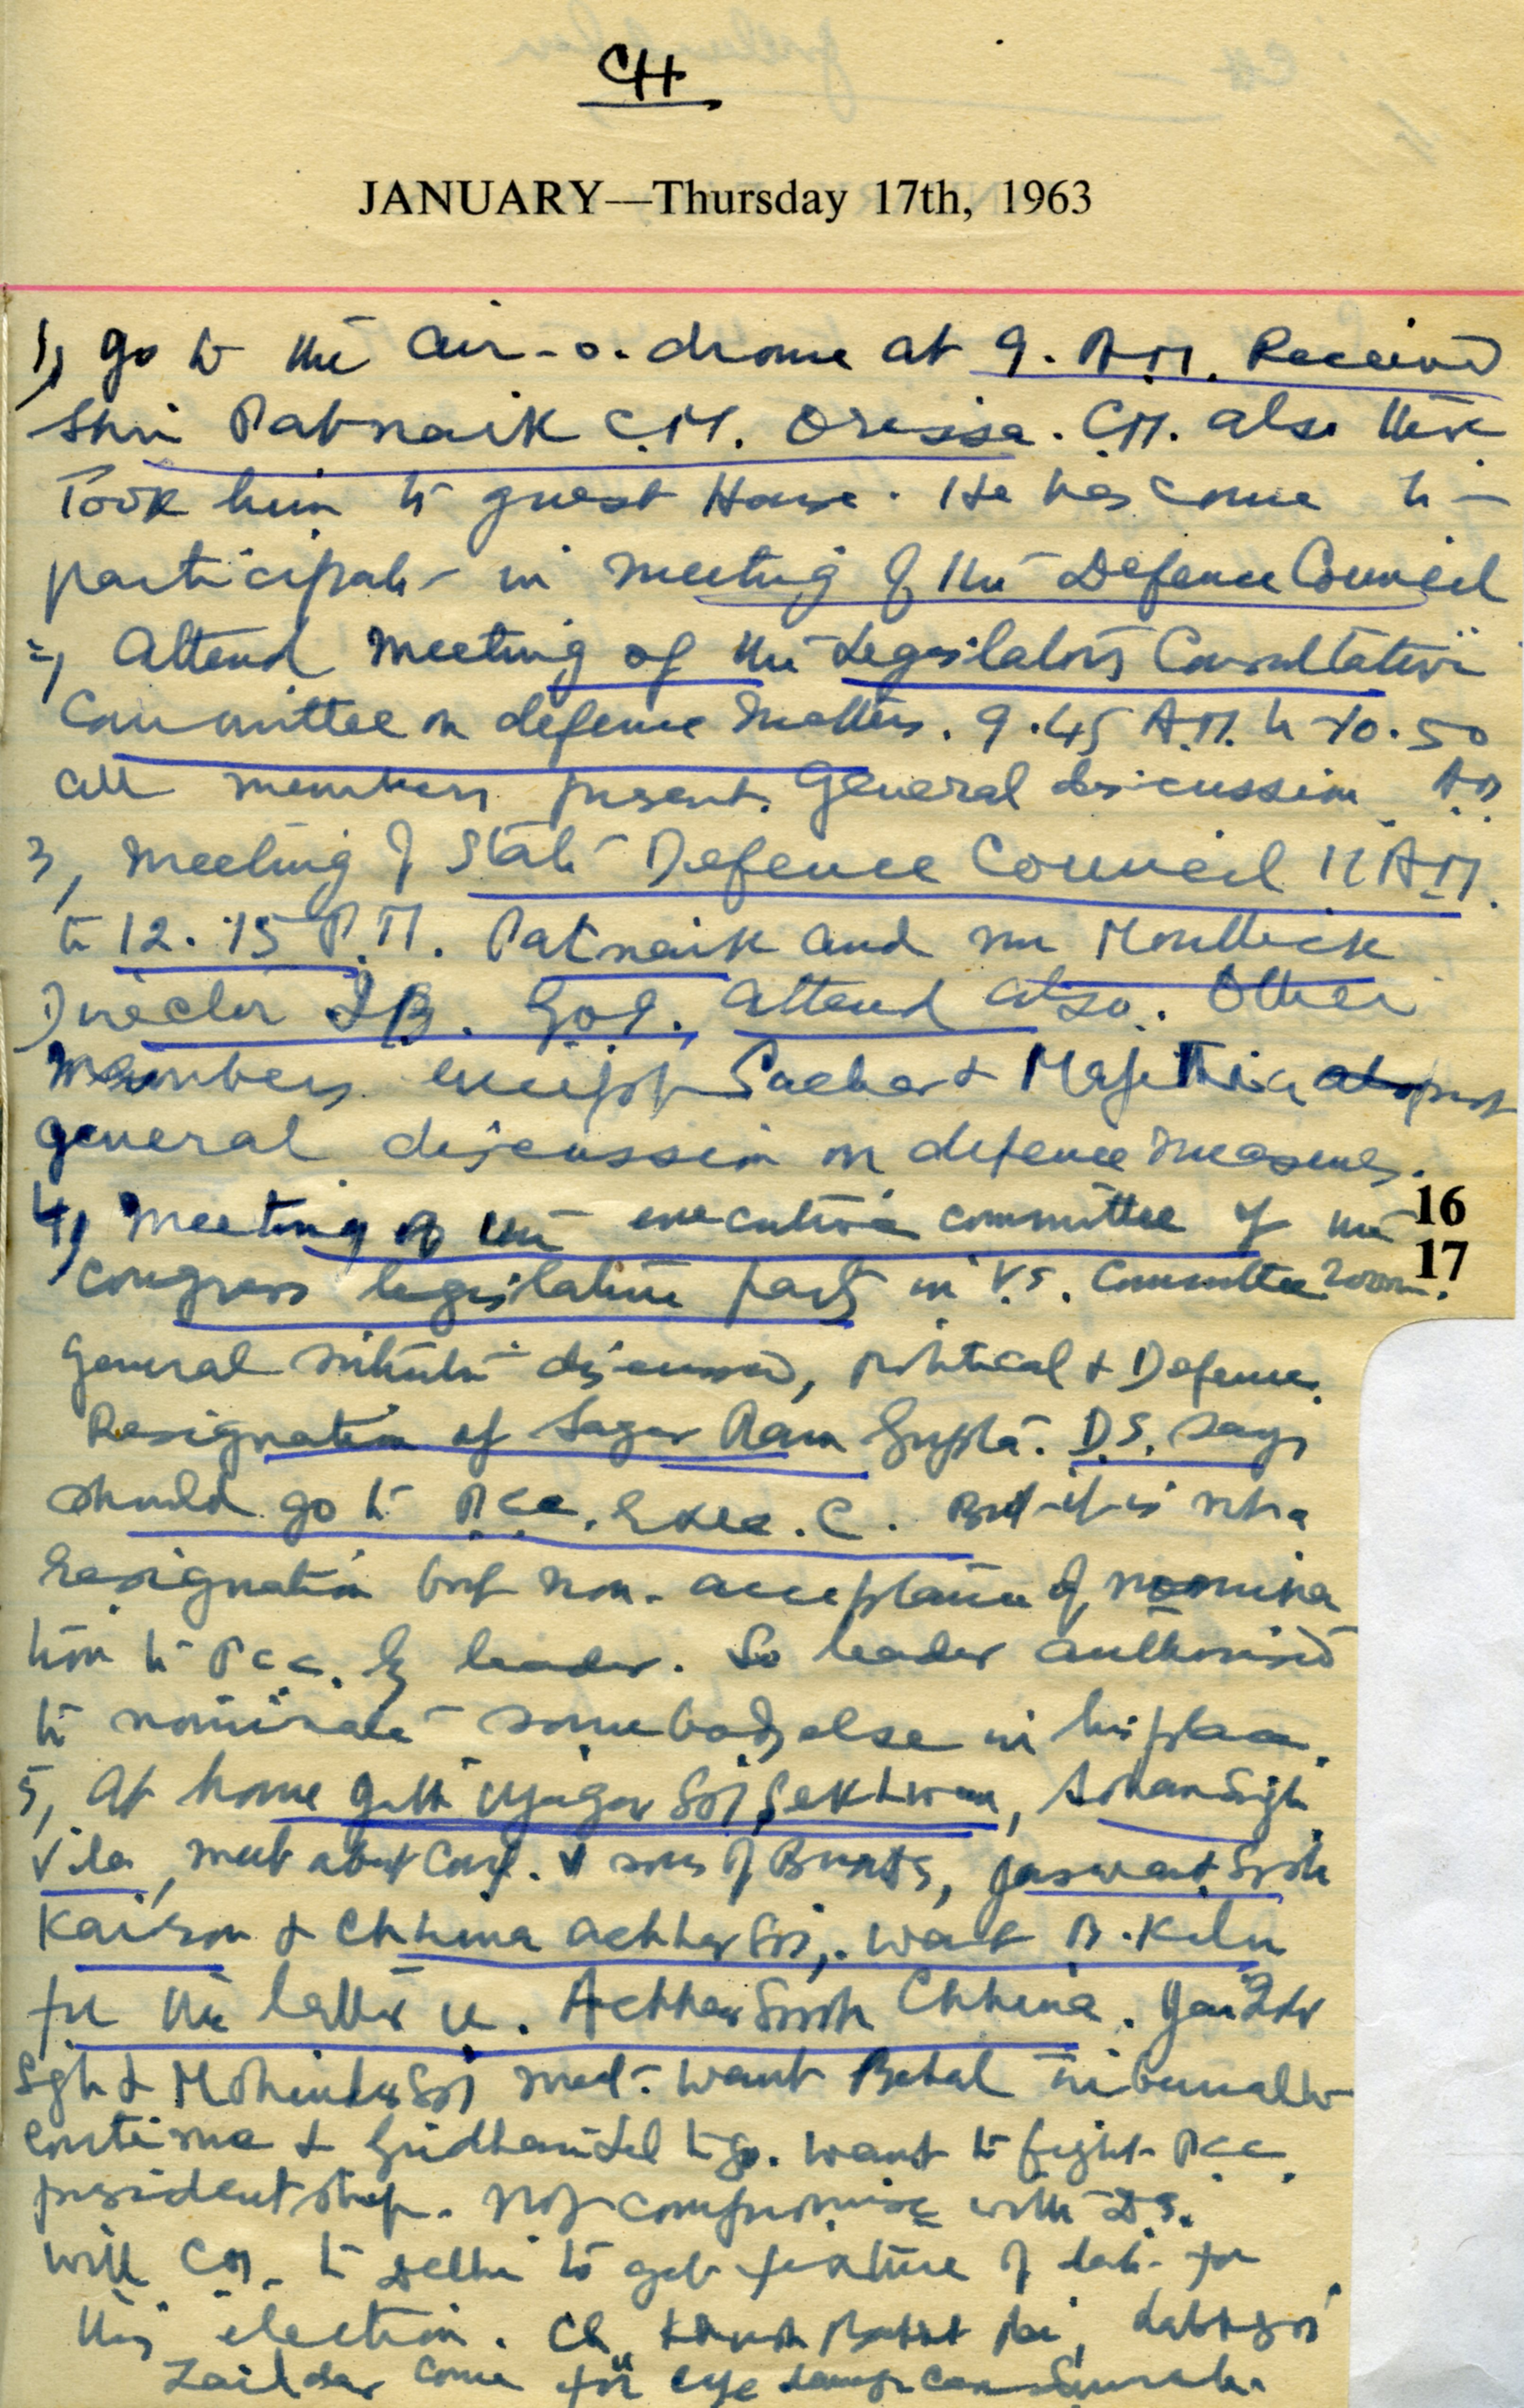 CH
JANUARY—Thursday 17th, 1963
1, go to the air-o-drome at 9. A.M. Received
Shri Patnaik C.M. Orissa. C.M. also there
Took him to guest House. He has come to
participate in meeting of the Defence Council
2, Attend meeting of the Legislators Consultative
Committee on defence matters. 9.45 A.M. to 10.50
all members present. General discussion A.M.
3, Meeting of State Defence Council 11 A.M.
to 12.15 P.M. Patnaik and Moullick
Director I.B. G.O.I. attend also. Other
Members except Sachar & Majithia
general discussion on defence measures.
4, Meeting of the executive committee of the
16
Congress legislative party in V.S. Committee room.
17
General situation discussed, political & Defence.
Resignation of Sagar Ram Gupta. D.S. says
should go to P.C.C. Exec. C. But it is not a
resignation but non-acceptance of nomina
tion to P.C.C. by leader. So leader authorised
to nominate somebody else in his place.
5, At home Ujagar Sekhwan, Sohan Singh
meet about & sons of, Jaswant Singh
Kairon & Chhina Achhar. want B. Kiln
for the latter ie. Achhar Singh Chhina.
& Mohinder meet. want Behal tribunal to
continue & to go. want to fight P.C.C.
presidentship. Not compromise with D.S.
will C.M. to Delhi to get fixture of date for
this election. Ch.
Zaildar come for eye